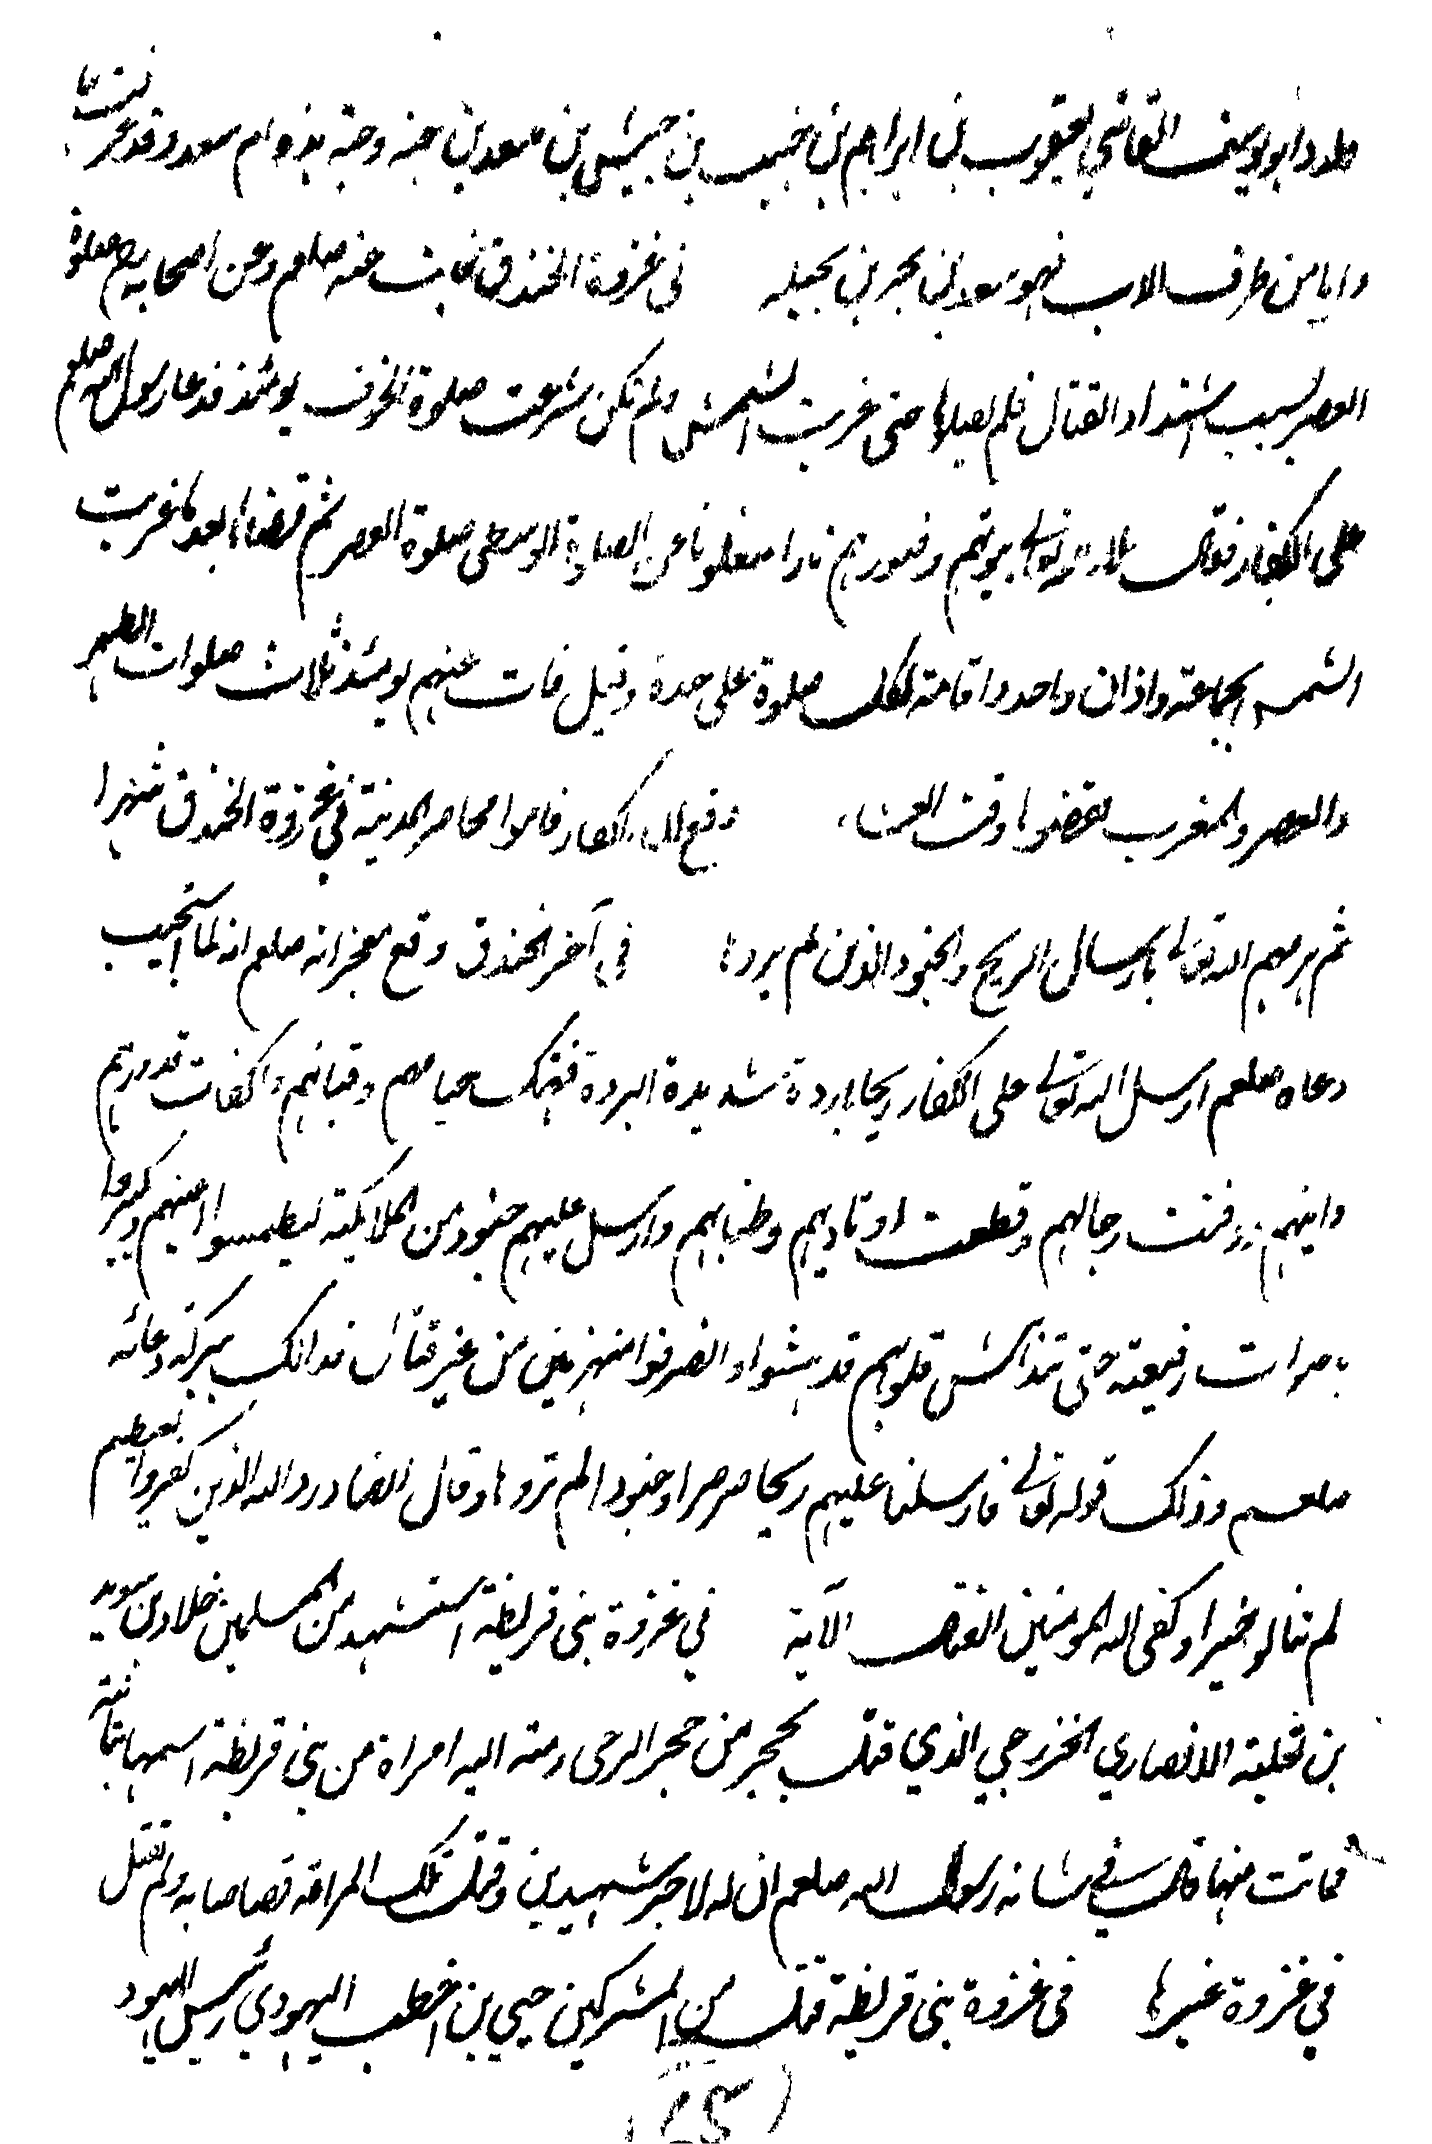 ولد ابو يوسف القاضي يعقوب بن ابراهيم بن خبيب بن حبيش بن سعد بن حبته وحبته هذه ام سعد وقد عرفت بها
واما من طرف الاب فهو سعد بن بجير بن بجيله في غزوة الخندق فاتت عنه صلعم وعن اصحابه رض صلوة
العصر بسبب اشتداد القتال فلم يصلها حتى غربت الشمس ولم تكن شرعت صلوة الخوف يومئذ فدعا رسول الله صلعم
على الكفار فقال ملا الله تعالى بيوتهم وقبورهم نارا شغلونا عن الصلوة الوسطى صلوة العصر ثم قضاها بعد ما غربت
الشمس بجماعة واذان واحد واقامة لكل صلوة على حدة وقيل فات عنهم يومئذ ثلاث صلوات الظهر
والعصر والمغرب فقضوها وقت العشاء وقع ان الكفار قاموا محاصر المدينة في غزوة الخندق شهرا
ثم هزمهم الله تعالى بارسال الريح والجنود الذين لم يروها في آخر الخندق وقع معجزاته صلعم انه لما استجيب
دعاه صلعم ارسل الله تعالى على الكفار ريحا باردة شديدة البردة فتهتك خيامهم وقبابهم واكفات قدورهم
وانيتهم ودفنت رحالهم وقطعت اوتادهم وطنابهم وارسل عليهم جنود من الملائكة ليطمسوا اعينهم وكبروا
باصوات رفيعة حتى قلوبهم قد هشوا وانصرفوا منهزمين من غير قتال فذلك ببركة دعائه
صلعم وذلك قوله تعالى فارسلنا عليهم ريحا صرصرا وجنودا لم تروها وقال ايضا ورد الله الذين كفروا بغيظهم
لم ينالوا خيرا وكفى الله المومنين القتال الآية في غزوة بني قريظة استشهد من المسلمين خلاد بن سويد
بن ثعلبة الانصاري الخزرجي الذي قتل بحجر من حجر الرحى رمته اليه امراة من بني قريظة اسمها بنانة
فماتت منها قال في شانه رسول الله صلعم ان له لاجر شهيدين وقتلت تلك المراة قصاصا به ولم تقتل
في غزوة غيرها في غزوة بني قريظة قتل من المشركين حيي بن اخطب اليهودي رئيس اليهود